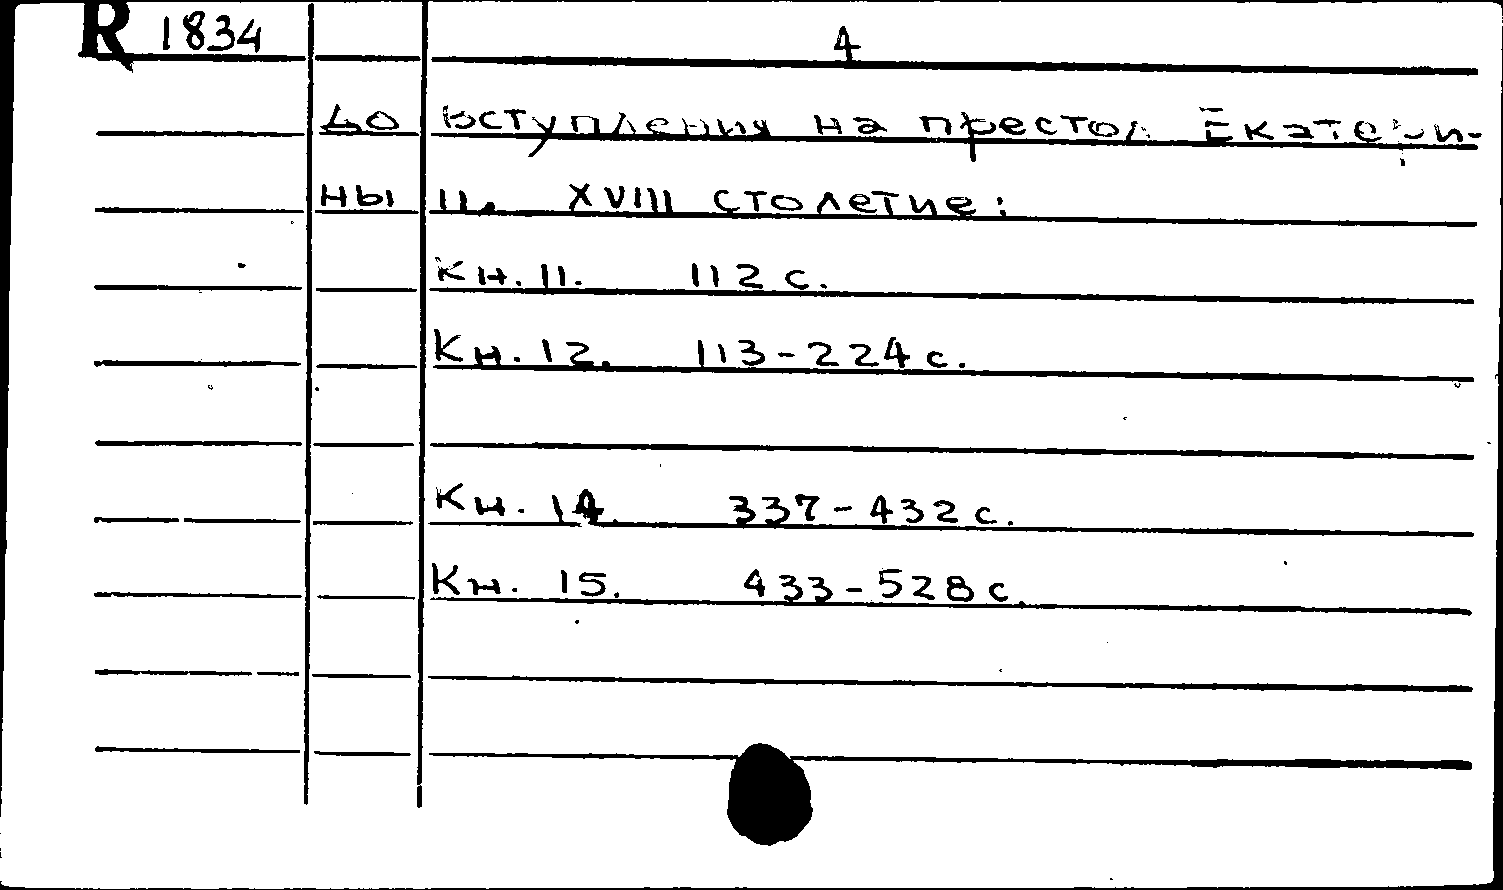 R 1834
4
до вступления на престол Екатери-
ны II. XVIII столетие:
Кн. 11. 112 с.
Кн. 12. 113-224 с.
Кн. 14. 337-432 с.
Кн. 15. 433-528 с.